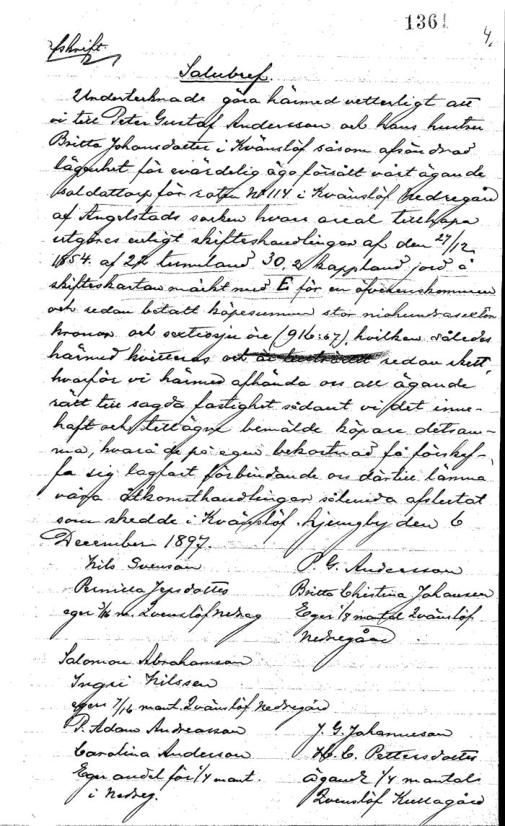 1361
4.
Afskrift
Salubref.
Undertecknade göra härmed vetterligt att
vi till Peter Gustaf Andersson och hans hustru
Britta Johansdotter i Kvänslöf såsom afsöndrad
lägenhet för evärdelig ägo försålt vårt ägande
soldattorp för roten No 114 i Kvänslöf Nedregård
af Angelstads socken hvars areal tillhopa
utgöres enligt skifteshandlingar af den 27/12
1854. af 2 tunnland 30,2 kappland jord å
skifteskartan märkt med E för en öfverenskommen
och redan betalt köpesumma stor niohundrasexton
kronor och sextiosju öre (916:67), hvilken således
härmed kvitteras redan skett,
hvarför vi härmed afhända oss all ägande
rätt till sagda fastighet sådant vi det inne-
haft och tillägna bemälde köpare detsam-
ma, hvarå de på egen bekostnad få förskaf-
fa sig lagfart förbindande oss därtill lämna
våra åtkomsthandlingar sålunda afslutat
som skedde i Kvänslöf. Ljungby den 6
December 1897.
Nils Svenson
P. G. Andersson
Pernilla Jepsdotter
Britta Christina Johansen
eger 3/16 m. Qvenslöf Nedreg
Eger 1/8 mantal Qvänslöf
Nedregård
Salomon Abrahamson
Ingri Nilssen
eger 7/16 mant. Qvänslöf Nedregård
P. Adam Andreasson
J. G. Johannesson
Carolina Anderson
H. C. Pettersdotter
Eger andel för 1/4 mant.
ägande 1/4 mantals
i Nedreg.
Qvenslöf Kullagård